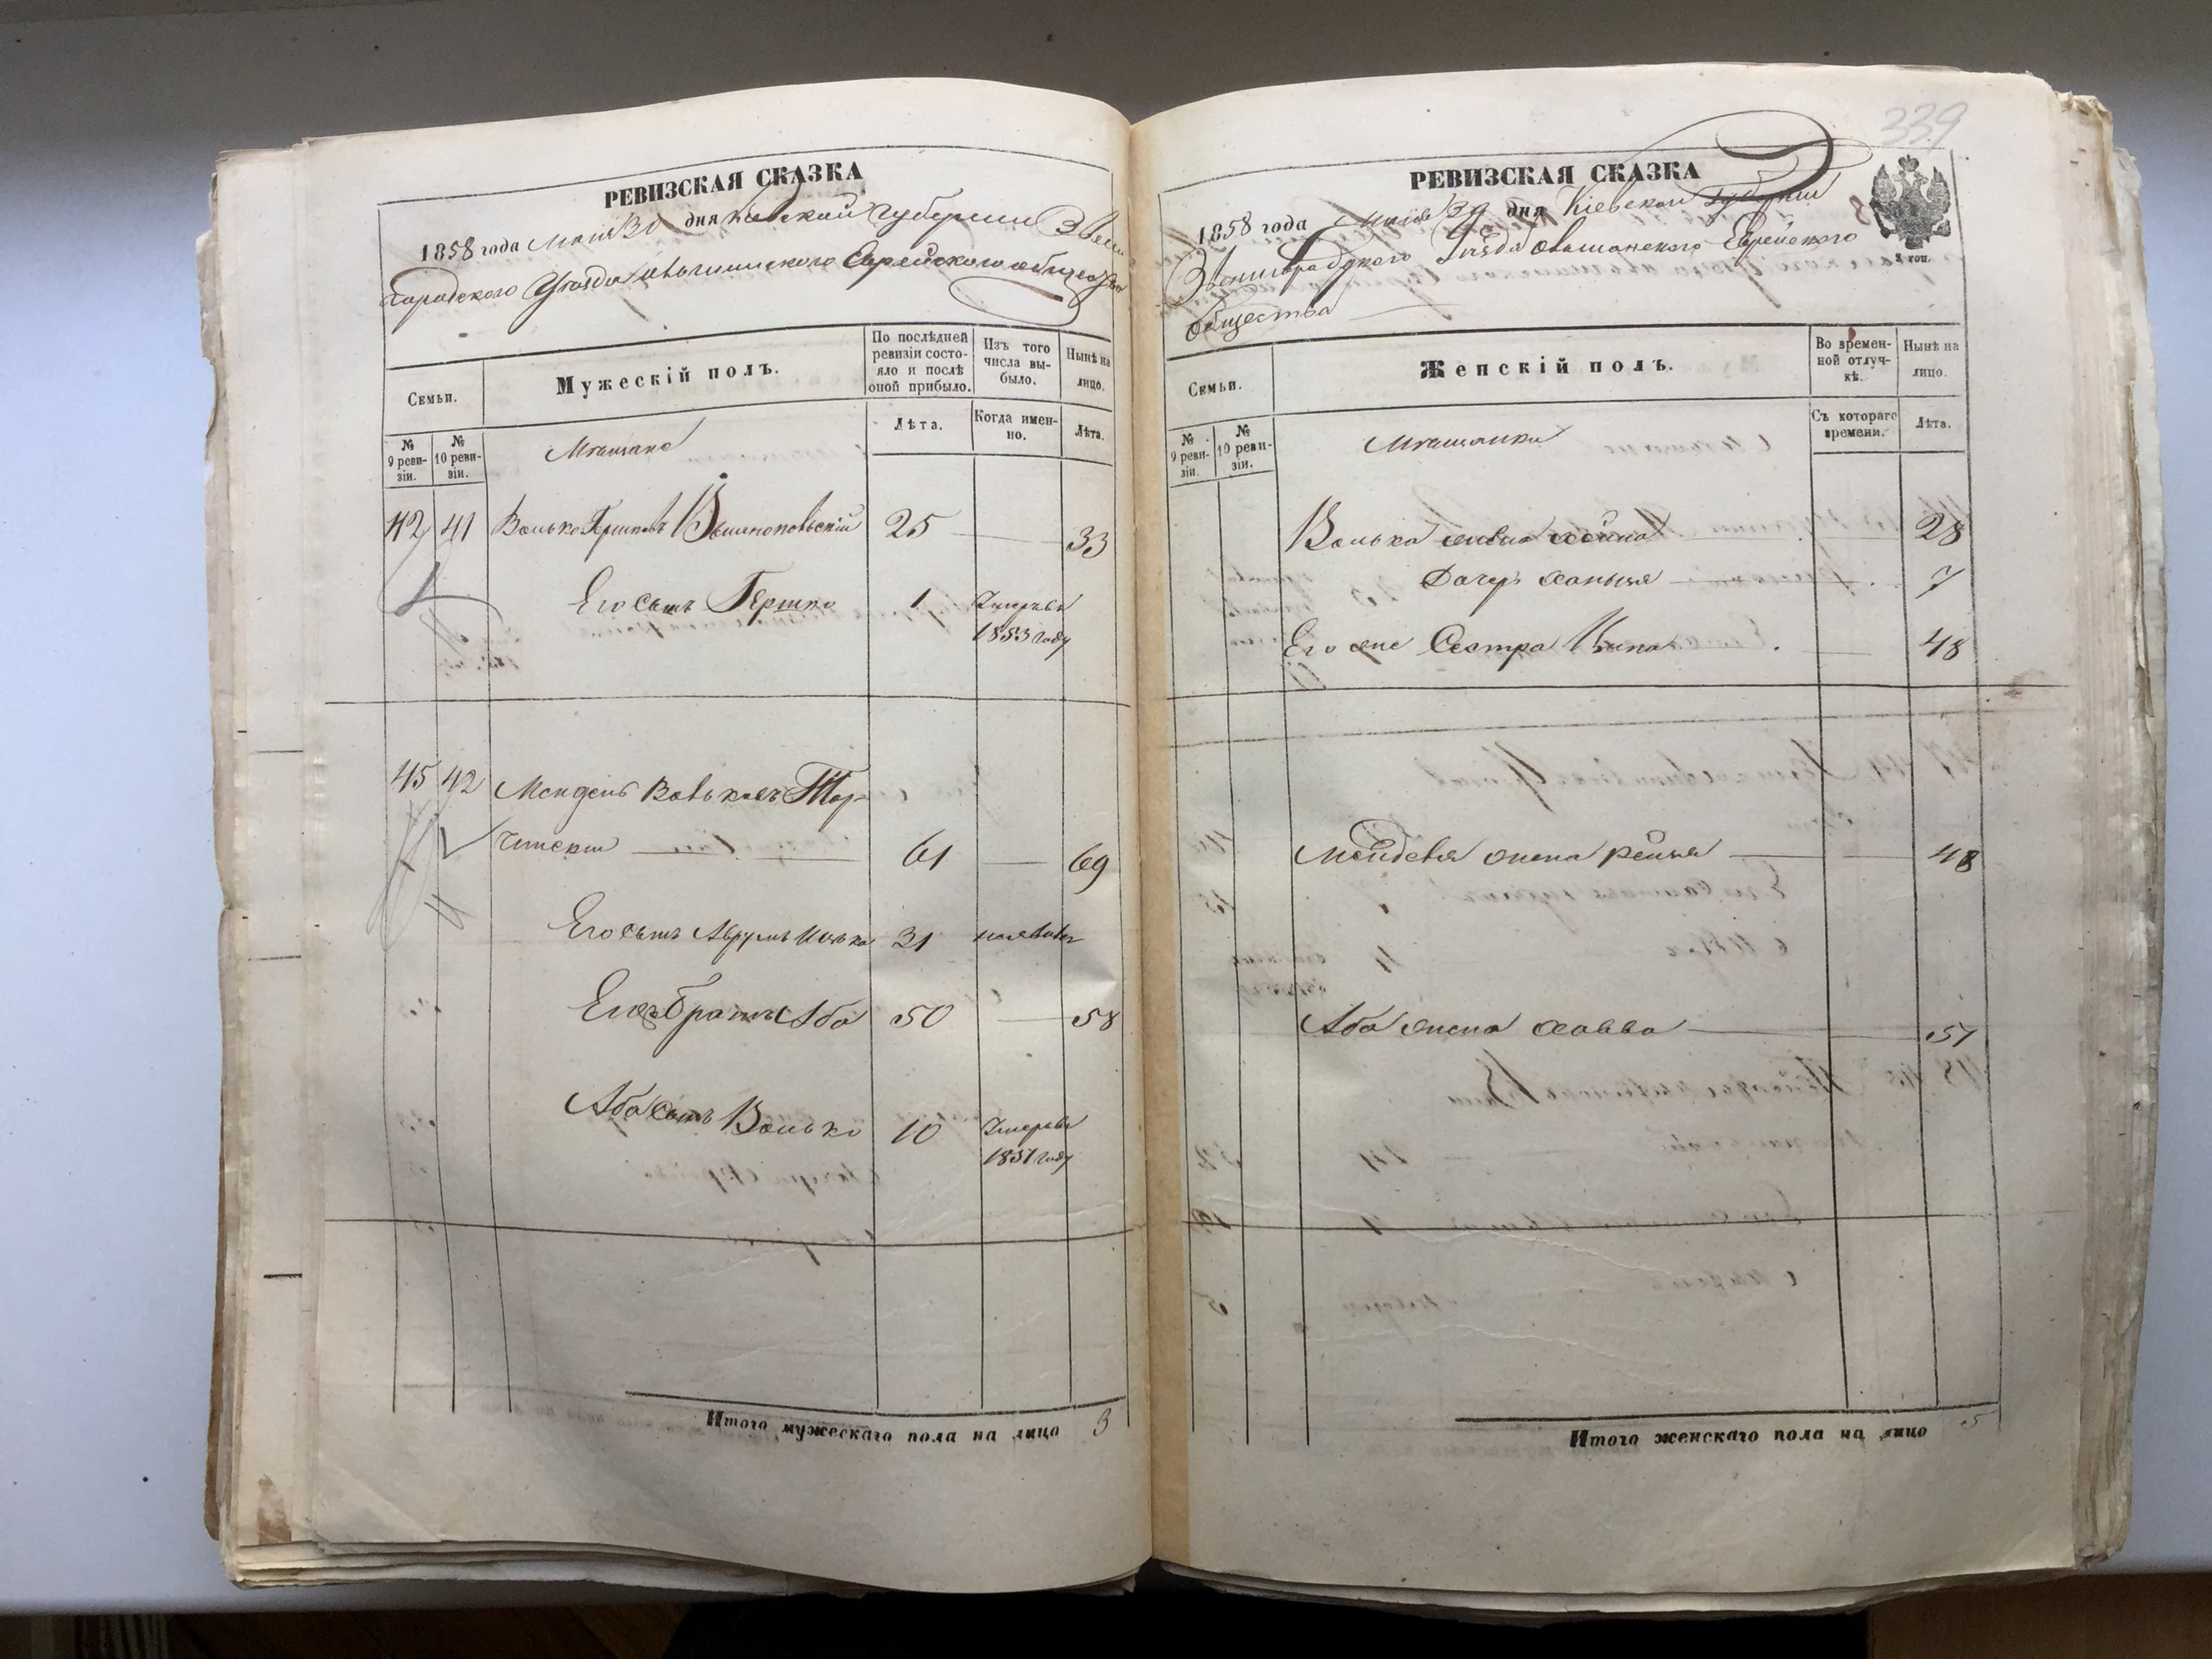 РЕВИЗСКАЯ СКАЗКА
1858 года мая 30 дня Киевской Губернии Звени
городского Уезда Ольшанского Еврейского общества
Семьи.
Мужескій полъ.
По послѣдней ревизіи состояло и послѣ оной прибыло.
Изъ того числа выбыло.
Нынѣ на лицо.
№ 9 ревизіи.
№ 10 ревизіи.
Мѣщане
Лѣта.
Когда именно.
Лѣта.
42 41 Волько Гершковъ 25 33
Его сынъ Гершко 1 Умеръ въ
1853 году
45 42 Мендель Вовьковъ Тор-
чински 61 69
Его сынъ Аврумъ 31 неявив
Его братъ Аба 50 58
Аба сынъ Волько 10 Умеръ въ
1851 году
Итого мужескаго пола на лицо 3
339
РЕВИЗСКАЯ СКАЗКА
1858 года мая 30 дня Кіевской Губерніи
Звенигородского Уѣзда Ольшанского Еврейского
общества
Семьи.
Женскій полъ.
Во временной отлучкѣ.
Нынѣ на лицо.
№ 9 ревизіи.
№ 10 ревизіи.
Мѣщанки
Съ котораго времени.
Лѣта.
Волька жена 28
Дочь 7
Его же Сестра 48
жена Рейзя 48
Аба жена Хавва 57
Итого женскаго пола на лицо 5